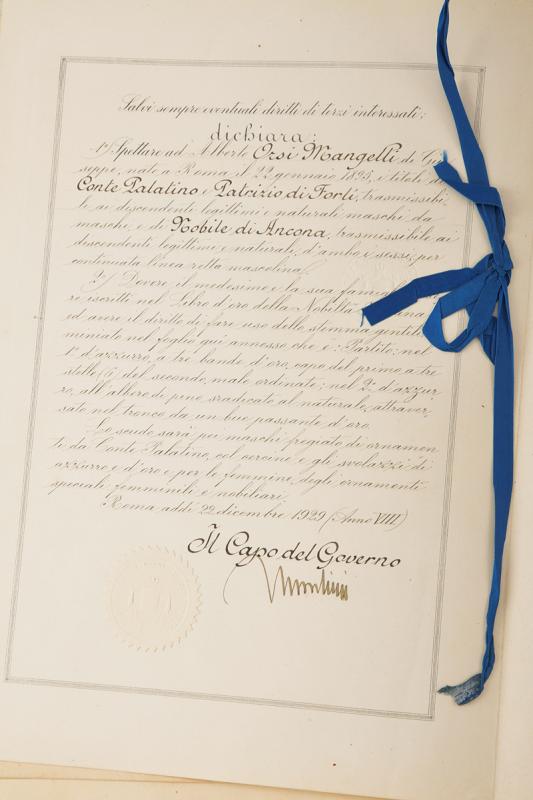 Salvi sempre eventuali diritti di terzi interessati;
dichiara:
1°) Spettare ad Alberto Orsi Mangelli di Giu
seppe, nato a Roma il 22 gennaio 1895, i titoli di
Conte Palatino e Patrizio di Forlì, trasmissibi
le ai discendenti legittimi e naturali maschi da
maschi, e di Nobile di Ancona, trasmissibile ai
discendenti legittimi e naturali, d'ambo i sessi, per
continuata linea retta mascolina.
2°) Dovere il medesimo e la sua famiglia
re iscritti nel Libro d'oro della Nobiltà
ed avere il diritto di fare uso dello stemma gentilizio
miniato nel foglio qui annesso che è: Partito; nel
1° d'azzurro, a tre bande d'oro, capo del primo a tre
stelle (6) del secondo, male ordinate; nel 2° d'azzur
ro, all'albero di pino sradicato al naturale, attraver
sato nel tronco da un bue passante d'oro.
Lo scudo sarà pei maschi fregiato di ornamen
ti da Conte Palatino, col cercine e gli svolazzi di
azzurro e d'oro e per le femmine, degli ornamenti
speciali femminili e nobiliari.
Roma addì 22 dicembre 1929 (Anno VIII)
Il Capo del Governo
Mussolini